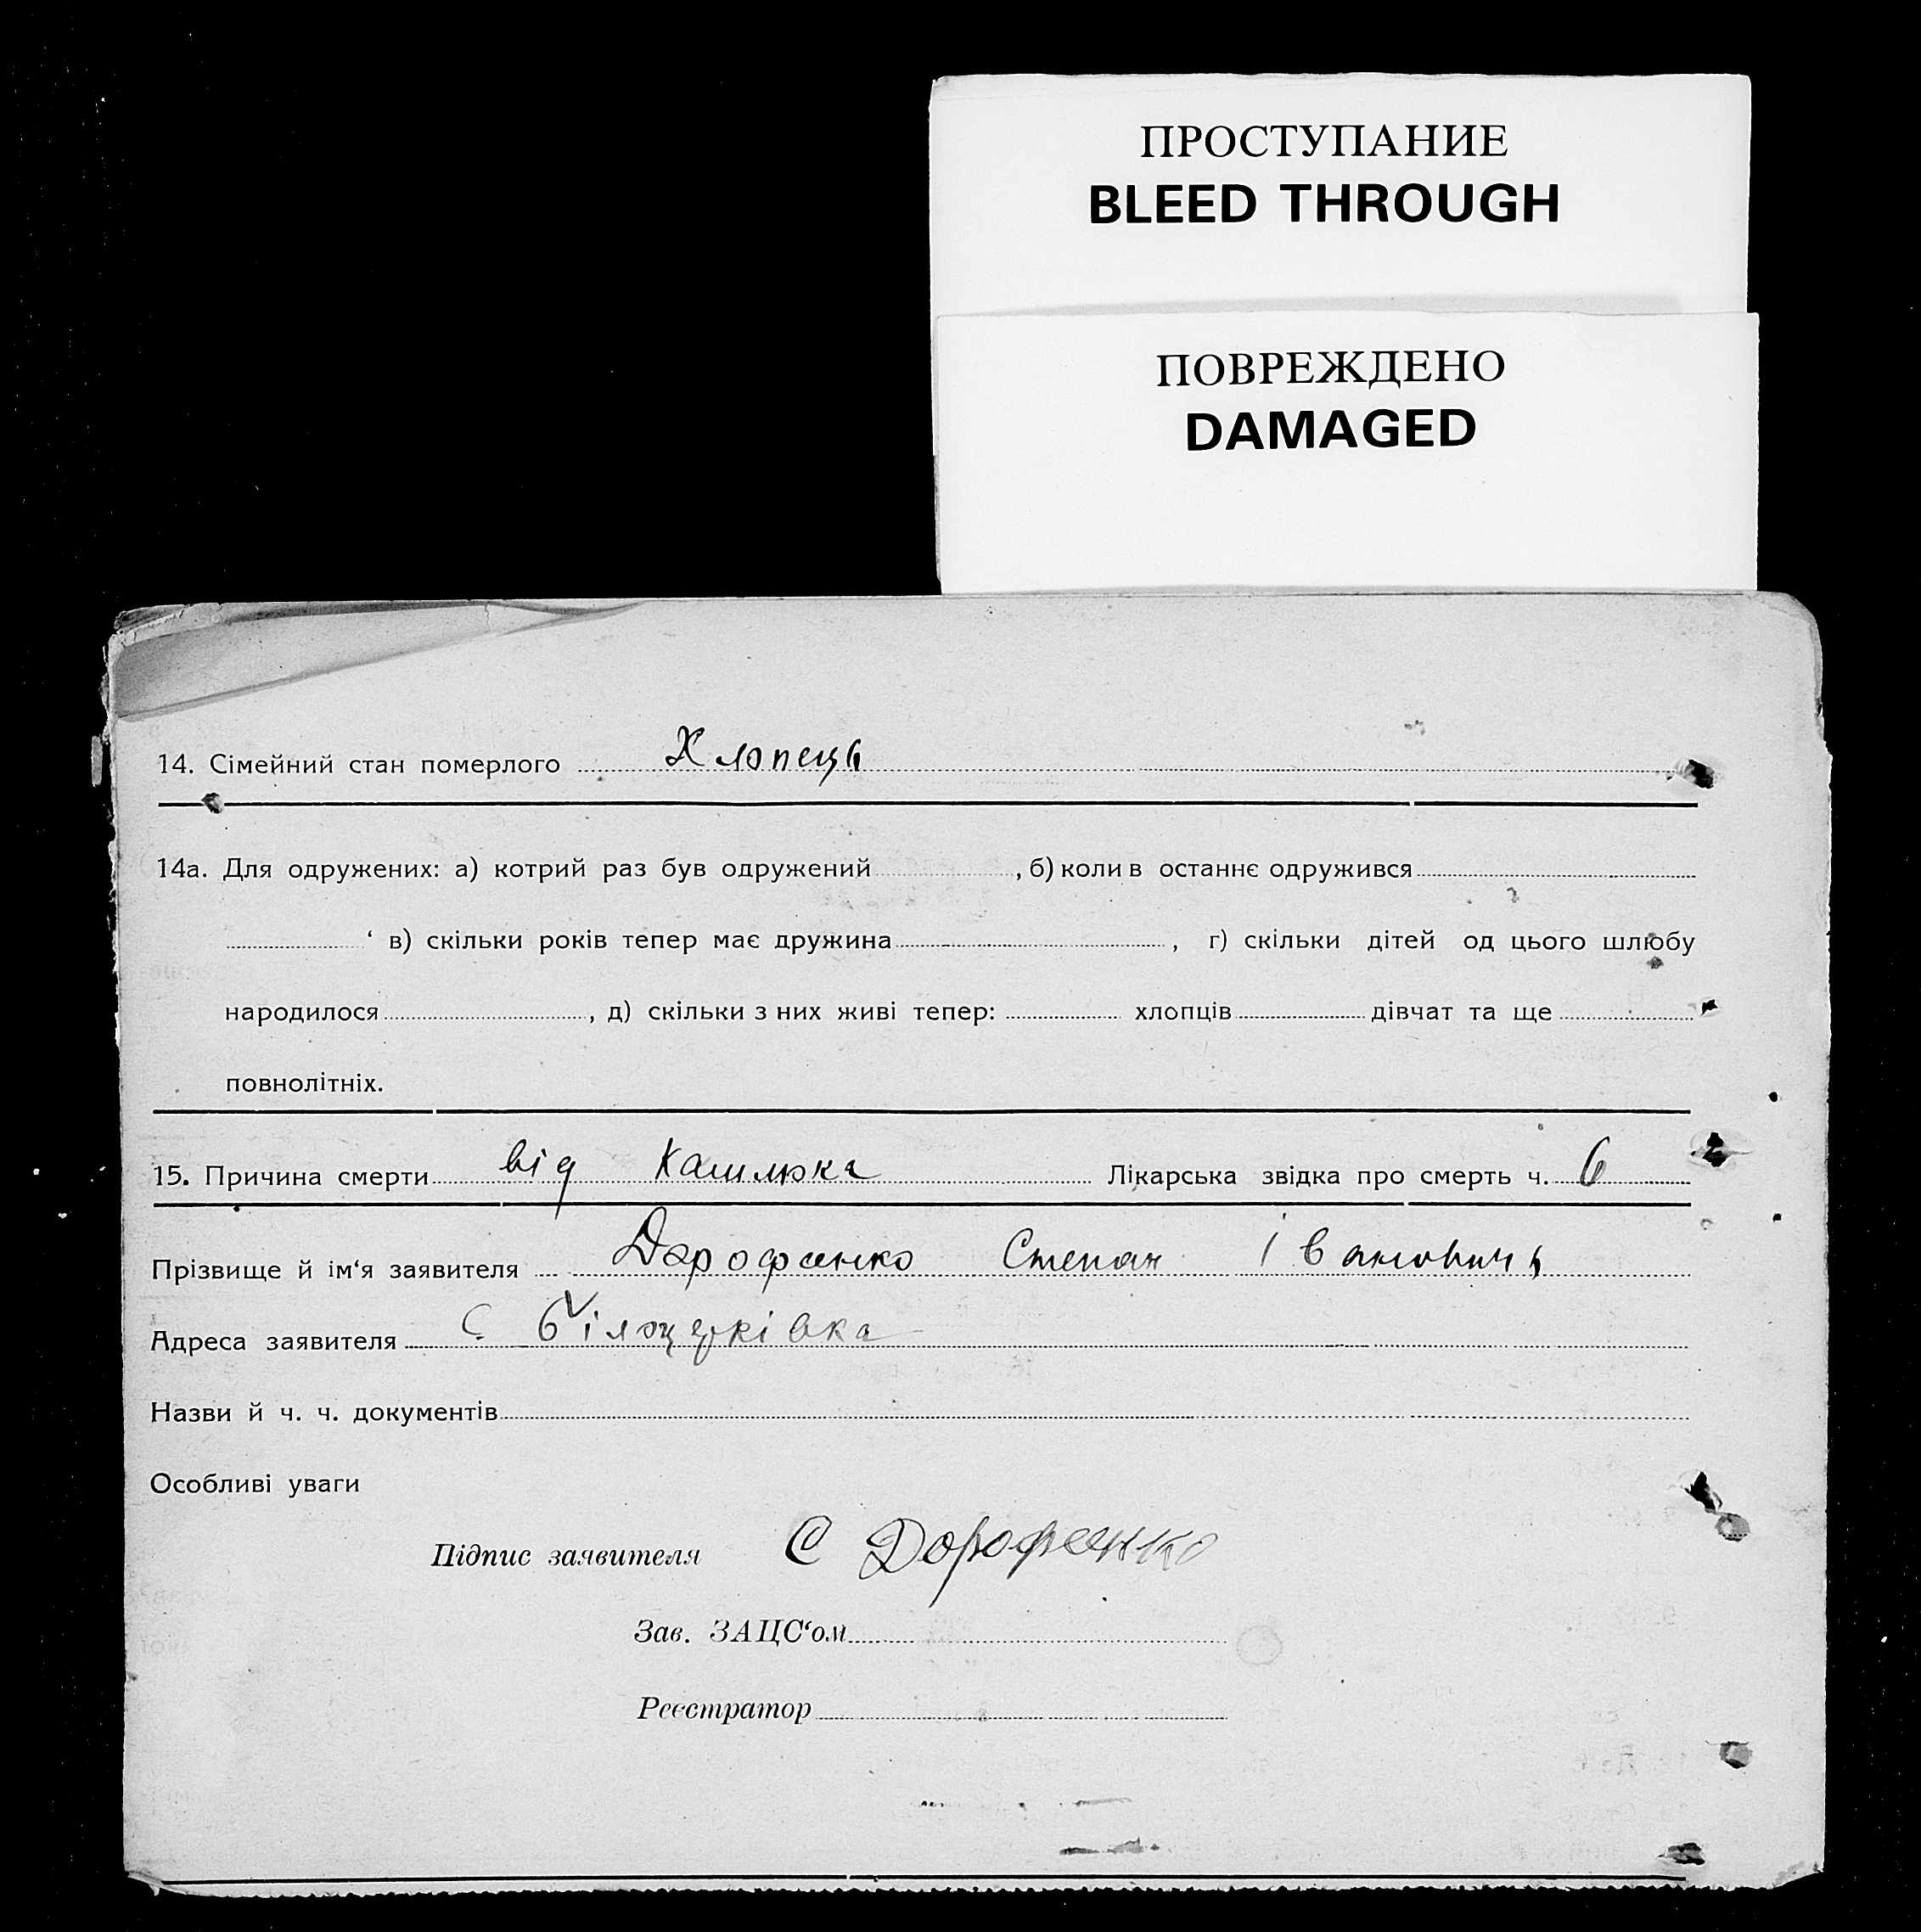 ПРОСТУПАНИЕ
BLEED THROUGH
ПОВРЕЖДЕНО
DAMAGED
14. Сімейний стан померлого Хлопець
14а. Для одружених: а) котрий раз був одружений , б) коли в останнє одружився
‘ в) скільки років тепер має дружина , г) скільки дітей од цього шлюбу
народилося , д) скільки з них живі тепер: хлопців дівчат та ще
повнолітніх.
15. Причина смерти від Кашлюка Лікарська звідка про смерть ч. 6
Прізвище й ім‘я заявителя Дарофенко Степан Івановичь
Адреса заявителя С. Білоцерківка
Назви й ч. ч. документів
Особливі уваги
Підпис заявителя С Дорофенко
Зав. ЗАЦС‘ом
Реєстратор